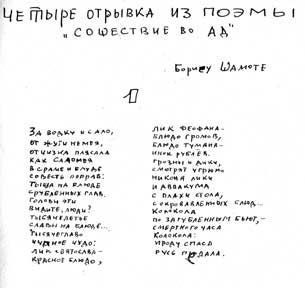 ЧЕТЫРЕ ОТРЫВКА ИЗ ПОЭМЫ
„СОШЕСТВИЕ ВО АД"
Борису ШАМОТЕ
1
ЗА ВОДКУ И САЛО,
ОТ ЖУТИ НЕМЕЯ,
ОТЧИЗНА ПЛЯСАЛА
КАК САЛОМЕЯ
В СРАМЕ И БЛУДЕ
СОВЕСТЬ ПОПРАВ:
ТЫЩА НА БЛЮДЕ
СРУБЛЕННЫХ ГЛАВ.
ГОЛОВЫ ЭТИ
ВИДИТЕ, ЛЮДИ?
ТЫСЯЧЕЛЕТЬЕ
СЛАВЫ НА БЛЮДЕ...
ТЫСЯЧЕГЛАВО
ЧУДНОЕ ЧУДО:
ЛИК СВЯТОСЛАВА-
КРАСНОЕ БЛЮДО,
ЛИК ФЕОФАНА-
БЛЮДО ГРОМОВ,
БЛЮДО ТУМАНА-
ИНОК РУБЛЁВ.
ГРОЗНЫ И ДИКИ,
СМОТРЯТ УГРЮМО
НИКОНА ЛИКИ
И АВВАКУМА
С ПЛАХИ СТОЛА,
С ОКРОВАВЛЕННЫХ БЛЮД...
КОЛОКОЛА
ПО ЗАГУБЛЕННЫМ БЬЮТ,-
СМЕРТНОГО ЧАСА
КОЛОКОЛА:
ИРОДУ СПАСА
РУСЬ ПРЕДАЛА.